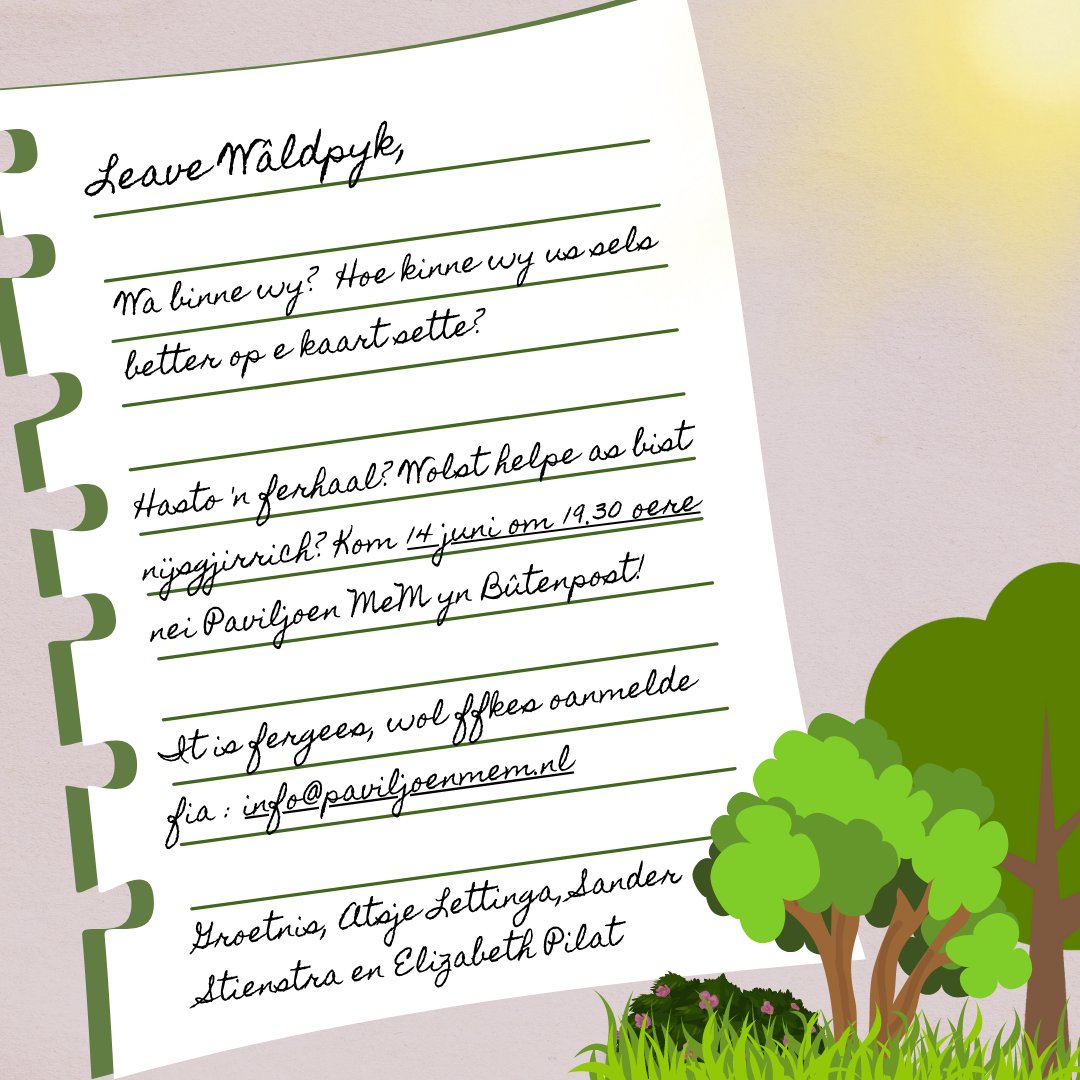 Leave Wâldpyk,
Wa binne wy? Hoe kinne wy us sels
better op e kaart sette?
Hasto 'n ferhaal? Wolst helpe as bist
nijsgjirrich? Kom 14 juni om 19.30 oere
nei Paviljoen MeM yn Bûtenpost!
It is fergees, wol ffkes oanmelde
fia : info@paviljoenmem.nl
Groetnis, Atsje Lettinga, Sander
Stienstra en Elizabeth Pilat